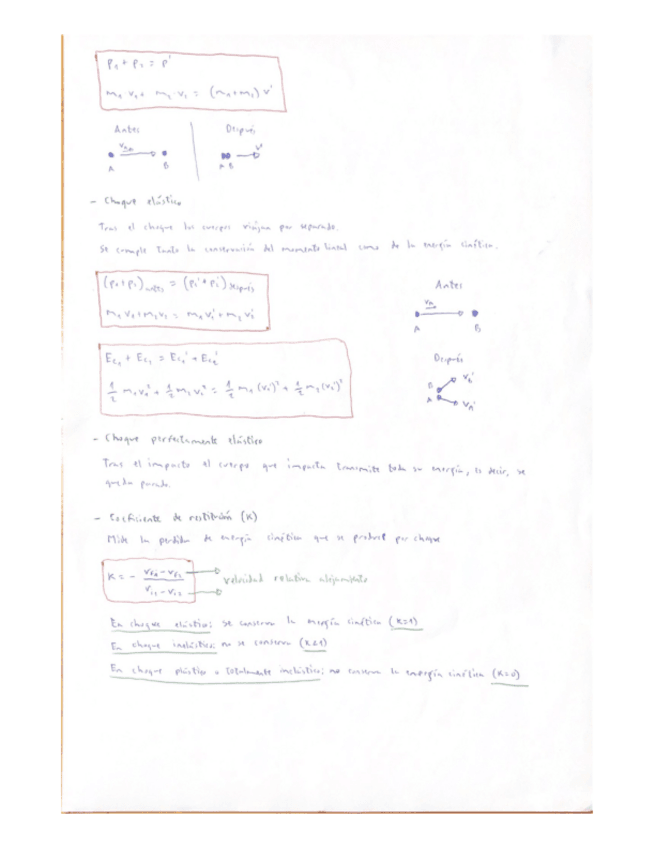 p₁ + p₂ = p'
m₁ v₁ + m₂ · v₂ = (m₁+m₂) v'
Antes Después
A B A B v'
- Choque elástico
Tras el choque los cuerpos viajan por separado.
Se cumple tanto la conservación del momento lineal como de la energía cinética.
(p₁+p₂)antes = (p₁'+p₂')después
m₁ v₁ + m₂ v₂ = m₁ v₁' + m₂ v₂'
Antes
vA
A B
Ec₁ + Ec₂ = Ec₁' + Ec₂'
½ m₁ v₁² + ½ m₂ v₂² = ½ m₁ (v₁')² + ½ m₂ (v₂')²
Después
B vB'
A vA'
- Choque perfectamente elástico
Tras el impacto el cuerpo que impacta transmite toda su energía, es decir, se
queda parado.
- Coeficiente de restitución (K)
Mide la perdida de energía cinética que se produce por choque
K = - vf₁ - vf₂ / vi₁ - vi₂
velocidad relativa alejamiento
En choque elástico: se conserva la energía cinética (K=1)
En choque inelástico: no se conserva (K<1)
En choque plástico o totalmente inelástico: no conserva la energía cinética (K=0)